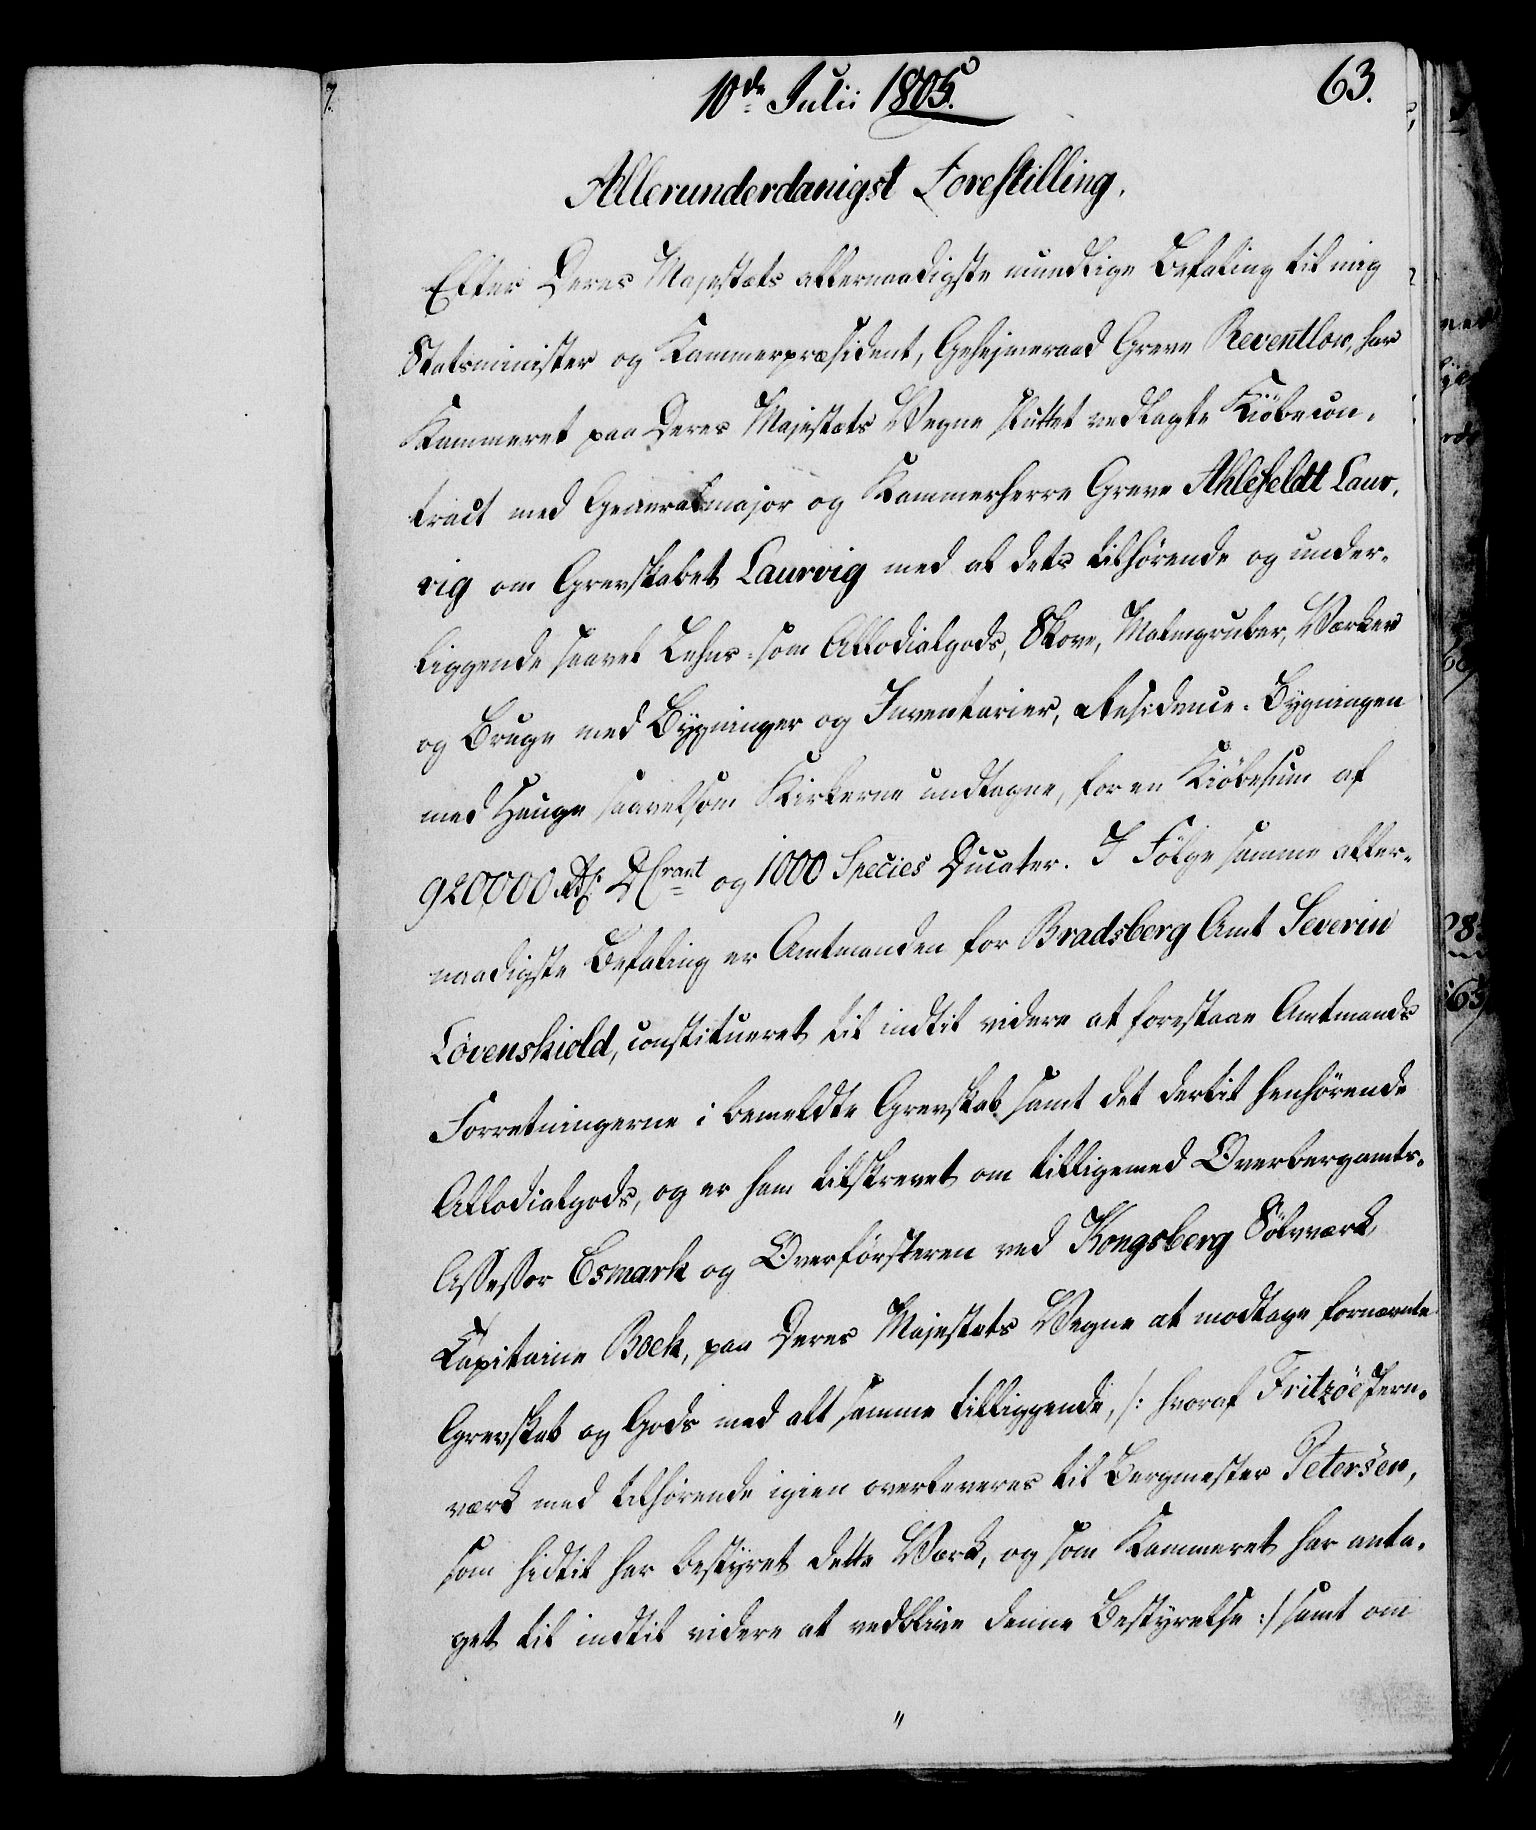 10de Julii 1805.
63.
Allerunderdanigst Forestilling.
Efter Deres Majestæts allernaadigste mundtlige Befaling til mig
Statsminister og Kammerpræsident, Geheimeraad Greve Reventlow, har
Kammeret paa Deres Majestæts Vegne sluttet vedlagte Kiöbecon-
tract med Generalmajor og Kammerherre Greve Ahlefeldt Laur-
vig om Grevskabet Laurvig med al dets tilhörende og under-
liggende saavel Lehns- som Allodialgods, Skove, Malmgruber, Værker
og Bruge med Bygninger og Inventarier, Residence-Bygningen
med Hauge saavelsom Kirkerne undtagne, for en Kiöbesum af
920,000 Rdr. DCrant og 1000 Species Ducater. I Fölge samme aller-
naadigste Befaling er Amtmanden for Bradsberg Amt Severin
Lövenskiold, constitueret til indtil videre at forestaae Amtmands
Forretningerne i bemeldte Grevskab samt det dertil henhörende
Allodialgods, og er ham tilskrevet om tilligemed Overbergamts-
Assessor Esmark og Overförsteren ved Kongsberg Sölvværk,
Capitaine Bock, paa Deres Majestæts Vegne at modtage fornævnte
Grevskab og Gods med alt samme tilliggende, /: hvoraf Fritzöe Jern-
værk med tilhörende igien overleveres til Bergmester Petersen,
som hidtil har bestyret dette Værk, og som Kammeret har anta-
get til indtil videre at vedblive denne Bestyrelse :/ samt om
"